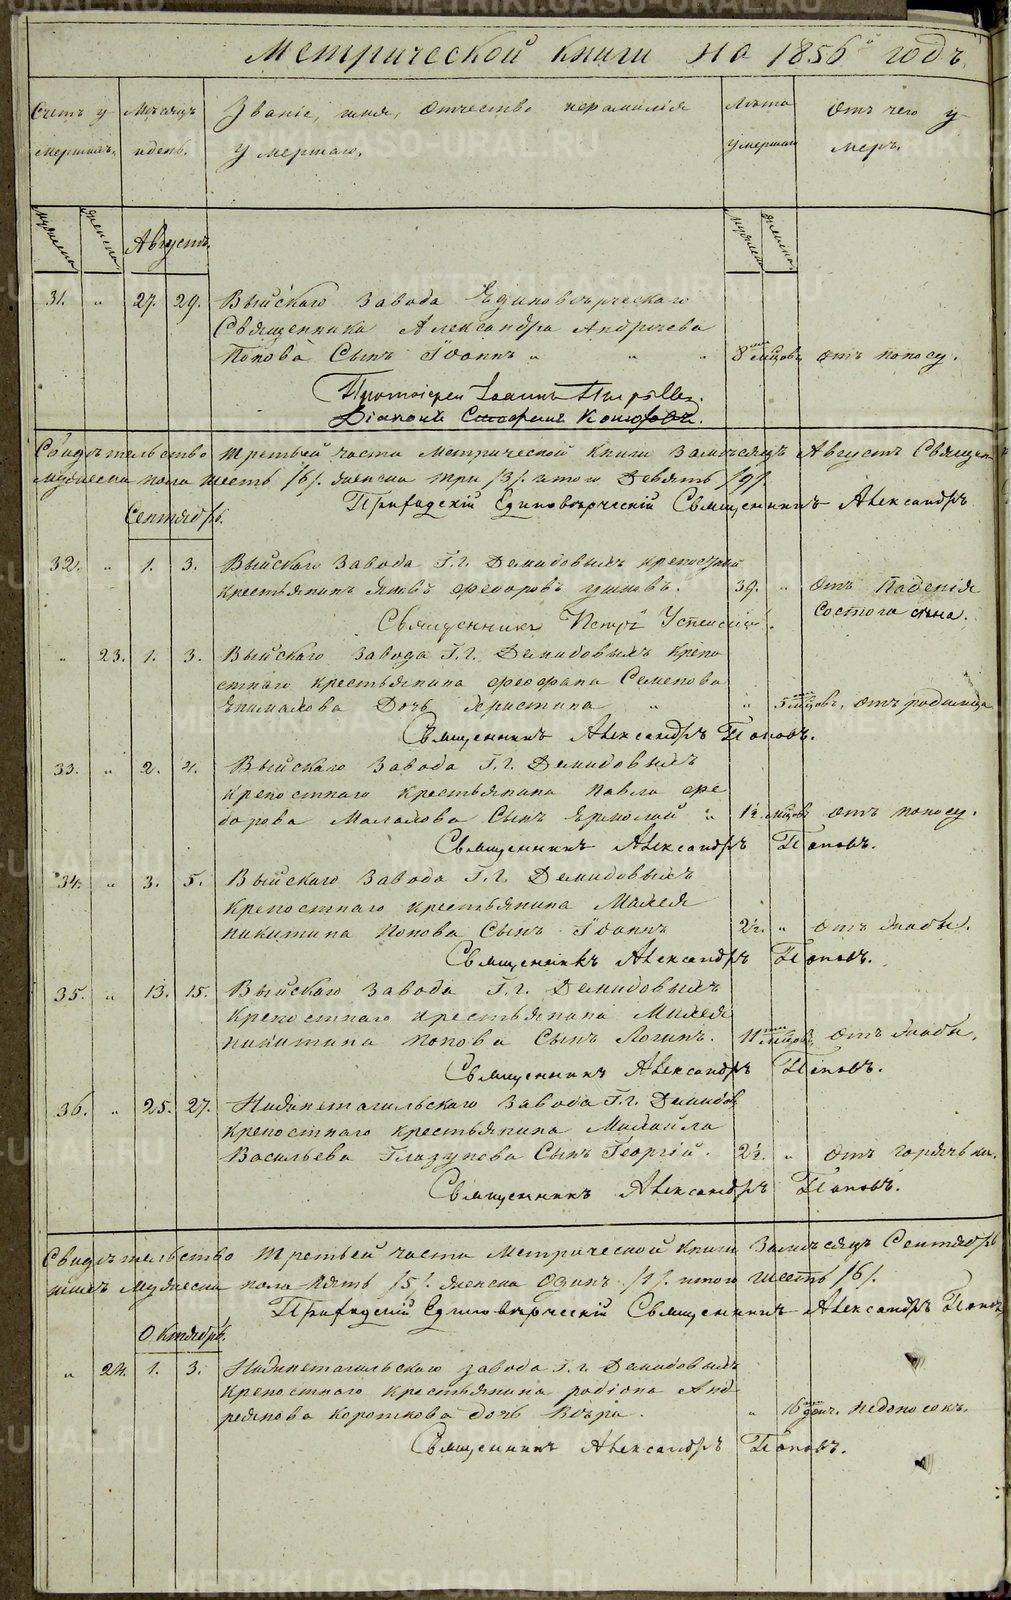 Метрической книги на 1856й годъ
Счетъ у- Мѣсяцъ Званіе, имя, отчество и фамилія Лѣта Отъ чего у-
мершихъ. и день. умершаго. умершаго меръ.
мужеска женска Августъ. мужеска женска
31. " 27. 29. Выйскаго завода Единовѣрческаго
Священника Александра Андреева
Попова Сынъ Іоаннъ " " " 8ми мѣсцовъ отъ поносу.
Протоіерей Іоаннъ
Діаконъ Стефанъ
Свидѣтельство третьей части метрической книги за мѣсяцъ Августъ Священ
мужеска пола шесть /6/. женска три /3/. итого Девять /9/.
Приходскій Единовѣрческій Священникъ Александръ
Сентябрь.
32. " 1. 3. Выйскаго завода Г.г. Демидовыхъ крепостный
крестьянинъ Яковъ Федоровъ 39. " отъ Паденія
состога сена.
Священникъ Петръ Успенскій.
" 23. 1. 3. Выйскаго завода Г.г. Демидовыхъ крепо
стнаго крестьянина Феофана Семенова
Дочь Христина " " 5ти мѣсцовъ, отъ родимца
Священникъ Александръ Поповъ.
33. " 2. 4. Выйскаго завода Г.г. Демидовыхъ
крепостнаго крестьянина Павла Фе
дорова Малахова Сынъ Ермолай " 1½ мѣсцовъ отъ поносу.
Священникъ Александръ Поповъ.
34. " 3. 5. Выйскаго завода Г.г. Демидовыхъ
крепостнаго крестьянина Михея
Никитина Попова Сынъ Іоаннъ 2½. " отъ жабы.
Священникъ Александръ Поповъ.
35. " 13. 15. Выйскаго завода Г.г. Демидовыхъ
крепостнаго крестьянина Михея
Никитина Попова Сынъ Логинъ. 11ти мѣсцовъ, отъ жабы.
Священникъ Александръ Поповъ.
36. " 25. 27. Нижнетагильскаго завода Г.г. Демидов
крепостнаго крестьянина Михайла
Васильева Глазунова Сынъ Георгій. 2½. " отъ горячьки.
Священникъ Александръ Поповъ.
Свидѣтельство третьей части метрической книги за мѣсяцъ Сентябрь
шихъ мужеска пола пять /5/. женска Одинъ /1/. итого шесть /6/.
Приходскій Единовѣрческій Священникъ Александръ Поповъ
Октябрь.
" 24. 1. 3. Нижнетагильскаго завода Г.г. Демидовыхъ
крепостнаго крестьянина Родіона Анд
реянова Короткова дочь Вѣра. " 16ти дён. недоносокъ.
Священникъ Александръ Поповъ.
METRIKI.GASO-URAL.RU